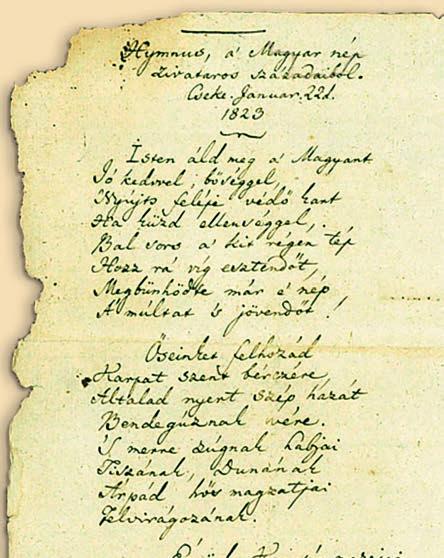 Hymnus, a' Magyar nép
zivataros századaiból.
Cseke. Januar. 22d.
1823
Isten áld meg a' Magyart
Jó kedvvel, bőséggel,
Nyújts feléje védő kart
Ha küzd ellenséggel,
Bal sors a' kit régen tép
Hozz rá víg esztendőt,
Megbűnhödte már e' nép
A' múltat 's jövendőt!
Őseinket felhozád
Kárpát szent bérczére
Általad nyert szép hazát
Bendegúznak vére.
'S merre zúgnak habjai
Tiszának, Dunának
Árpád hős magzatjai
Felvirágozának.